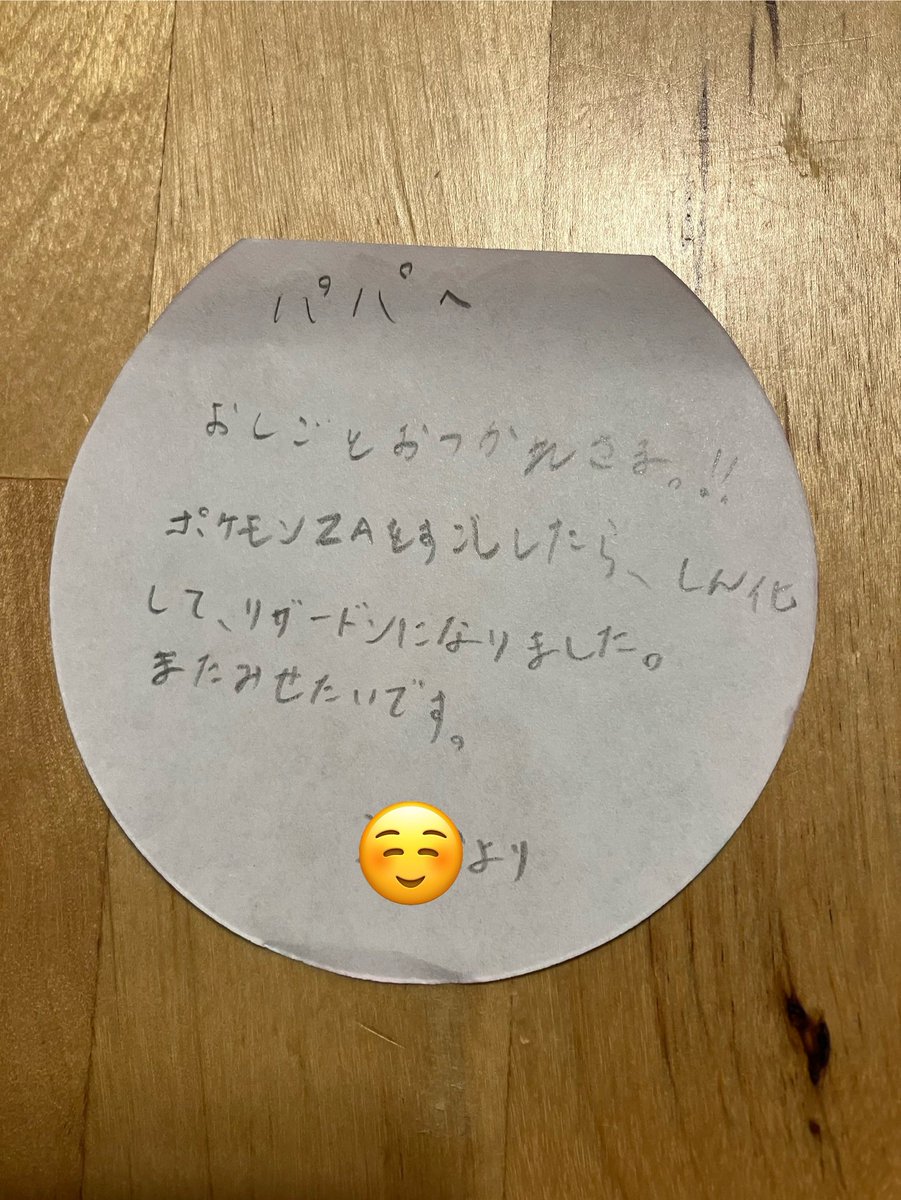 パパへ
おしごとおつかれさま。!!
ポケモンZAをすこししたら、しん化
して、リザードンになりました。
またみせたいです。
より